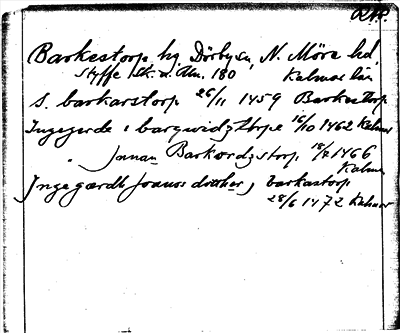 RAP.
Barkestorp, hg, Dörby sn, N. Möre hd,
Styffe Sk. u. Un. 180 Kalmar län
S. barkarstorp 26/11 1459 Barkestorp
Ingegerde i barqwidzthorpe 16/10 1462 Kalmar
Jonan Barkordzstorp 18/2 1466
Kalmar
Jngegerdh Joanss dotther, barkastorp
28/6 1472 Kalmar